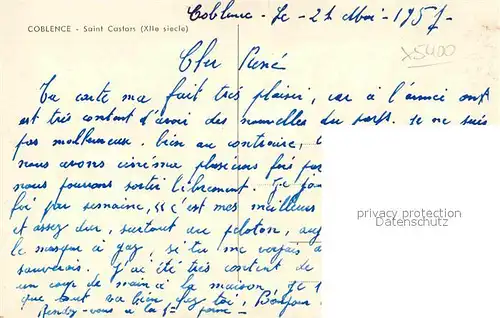 COBLENCE - Saint Castors (XIIe siecle)
Coblenc - Le - 21 Mai - 1957 -
X5400
Cher René
Ta carte ma fait très plaisir, car à l'armée ont
est très contant d'avoir des nouvelles du Je ne suis
pas malheureux. bien au contraire,
nous avons cinéma plusieurs fois par
nous pouvons sortir librement. Je
foi par semaine, "c'est mes meilleurs
et assez dur, surtout au peloton,
le masque à gaz, si tu me voyais
J'ai été très content de
un coup de main à la maison, Je
que tout va bien chez toi, Bonjour
Rendez-vous à la
privacy protection
Datenschutz